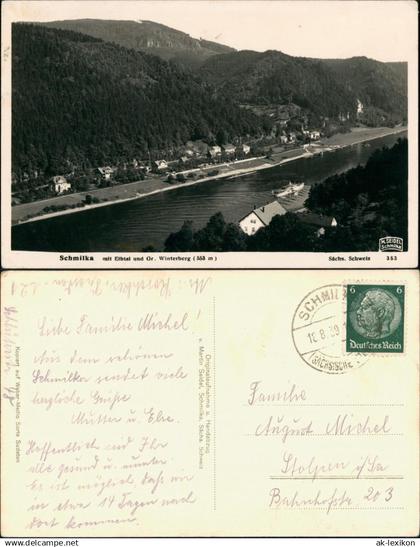 Schmilka mit Elbtal und Gr. Winterberg (553 m)
Sächs. Schweiz
M. SEIDEL
Schmilka
353
Liebe Familie Michel!
Aus dem schönen
Schmilka sendet viele
herzliche Grüße
Mutter u. Else.
Hoffentlich seid Ihr
alle gesund u. munter.
Es ist möglich, daß wir
in etwa 14 Tagen nach
dort kommen.
Originalaufnahme u. Handabzug
v. Martin Seidel, Schmilka, Sächs. Schweiz
SCHMILKA
18.8.39
(SÄCHSISCHE
6 6
Deutsches Reich
Familie
August Michel
Stolpen i/Sa
Bahnhofstr. 203
© ak-lexikon.com
www.ak-lexikon.de